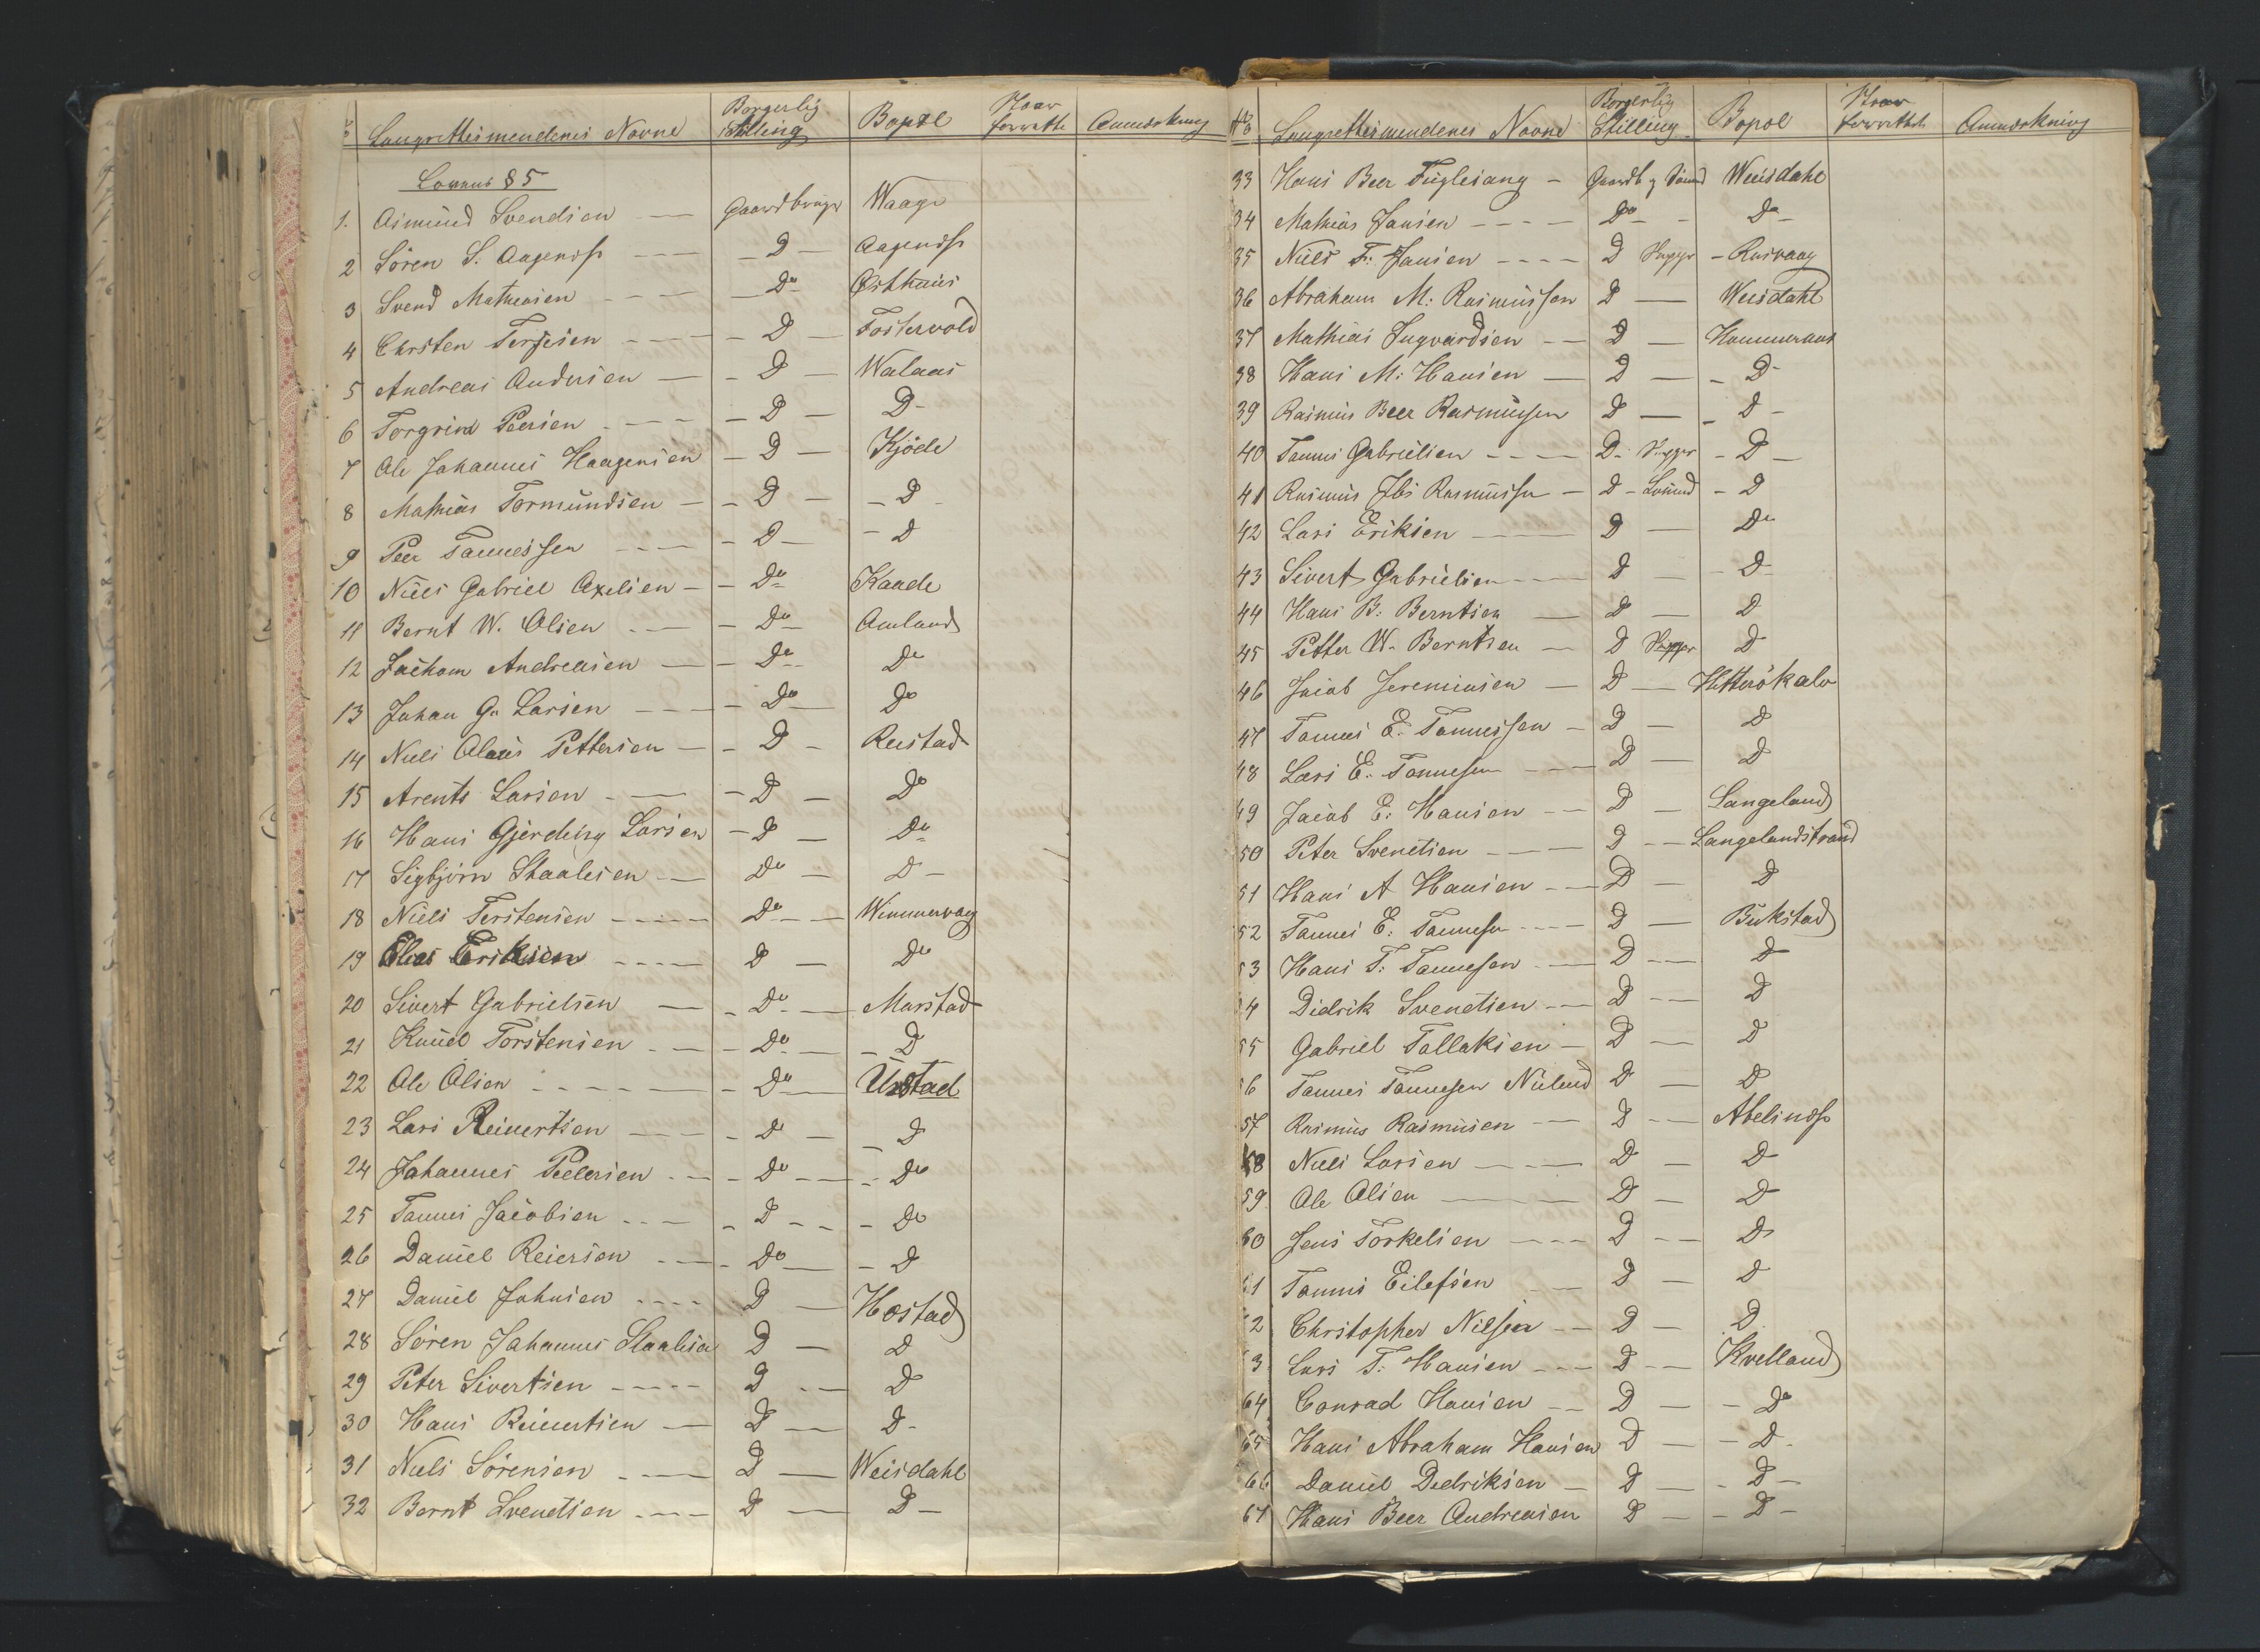 No Laugrettesmendenes Navne Borgerlig Stilling Bopæl Naar forrettet Anmærkning
Lovens § 5
1. Asmund Svendsen — Gaardbruger Waage
2 Sören S. Aagenæs — D — Aagenæs
3 Svend Mathiasen — Do Østhuus
4 Chrsten Terjesen — D — Fostervold
5 Andreas Andersen — D — Walaas
6 Torgrim Peersen — D — D -
7 Ole Johannes Haagensen — D — Kjöde
8 Mathias Tormundsen — D — D
9 Peer Tannessen — D — D
10 Niels Gabriel Axelsen — Do Kaade
11 Bernt W. Olsen — Do Amland
12 Joachom Andreasen — Do Do
13 Johan G. Larsen — Do Do
14 Niels Olaus Pettersen — D — Restad
15 Arents Larsen — D — Do
16 Hans Gjerding Larsen — D — Do
17 Sigbjörn Staalesen — Do — D -
18 Niels Terstensen — Do — Wimmervag
19 Elias Eriksen — D — Do
20 Sivert Gabrielsen — Do — Marstad
21 Knud Torstensen — Do — D
22 Ole Olsen — Do — Urstad
23 Lars Reinertsen — Do — D
24 Johannes Pedersen — Do — Do
25 Tannes Jacobsen — D — Do
26 Daniel Reiersen — Do — D
27 Daniel Johnsen — D — Hæstad
28 Sören Johannes Staalesen D — D
29 Peter Sivertsen — D — D
30 Hans Reinertsen — D — D -
31 Niels Sörensen — D — Weisdahl
32 Bernt Svendsen — D — D —
No Laugrettesmendenes Navne Borgerlig Stilling Bopæl Naar forrettet Anmærkning
33 Hans Beer Fuglesang — Gaardb Weisdahl
34 Mathias Jansen — Do — Do
35 Niels F. Jansen — D Skipper — Rusvaag
36 Abraham M. Rasmussen D — Weisdahl
37 Mathias Ingvardsen — D — Hammeraas
38 Hans M. Hansen — D — D
39 Rasmus Beer Rasmussen D — D -
40 Tannes Gabrielsen — D. Skipper — D —
41 Rasmus Ibs Rasmussen — D — D
42 Lars Eriksen — D — Do
43 Sivert Gabrielsen — D — D
44 Hans B. Berntsen — D — D
45 Petter W. Berntsen — D Skipper D
46 Jacob Jeremiasen — D — Hitterökalv
47 Tannes E. Tannessen — D — D
48 Lars E. Tannesen — D — D
49 Jacob E. Hansen — D — Langeland
50 Peter Svendsen — D — Langelandstrand
51 Hans A Hansen — D — D
52 Tannes E. Tannesen — D — Bukstad
53 Hans T. Tannesen — D — D
54 Didrik Svendsen — D — D
55 Gabriel Tollaksen — D — D
56 Tannes Tannesen D — D
57 Rasmus Rasmusen — D — Abelinæs
58 Niels Larsen — D — D
59 Ole Olsen — D — D
60 Jens Torkelsen — D — D
61 Tannes Eilefsen — D — D
62 Christopher Nilsen — D — D
63 Lars T. Hansen — D — Kvelland
64 Conrad Hansen — D — Do
65 Hans Abraham Hansen D — D -
66 Daniel Dedriksen — D — D —
67 Hans Beer Andreasen D — D —